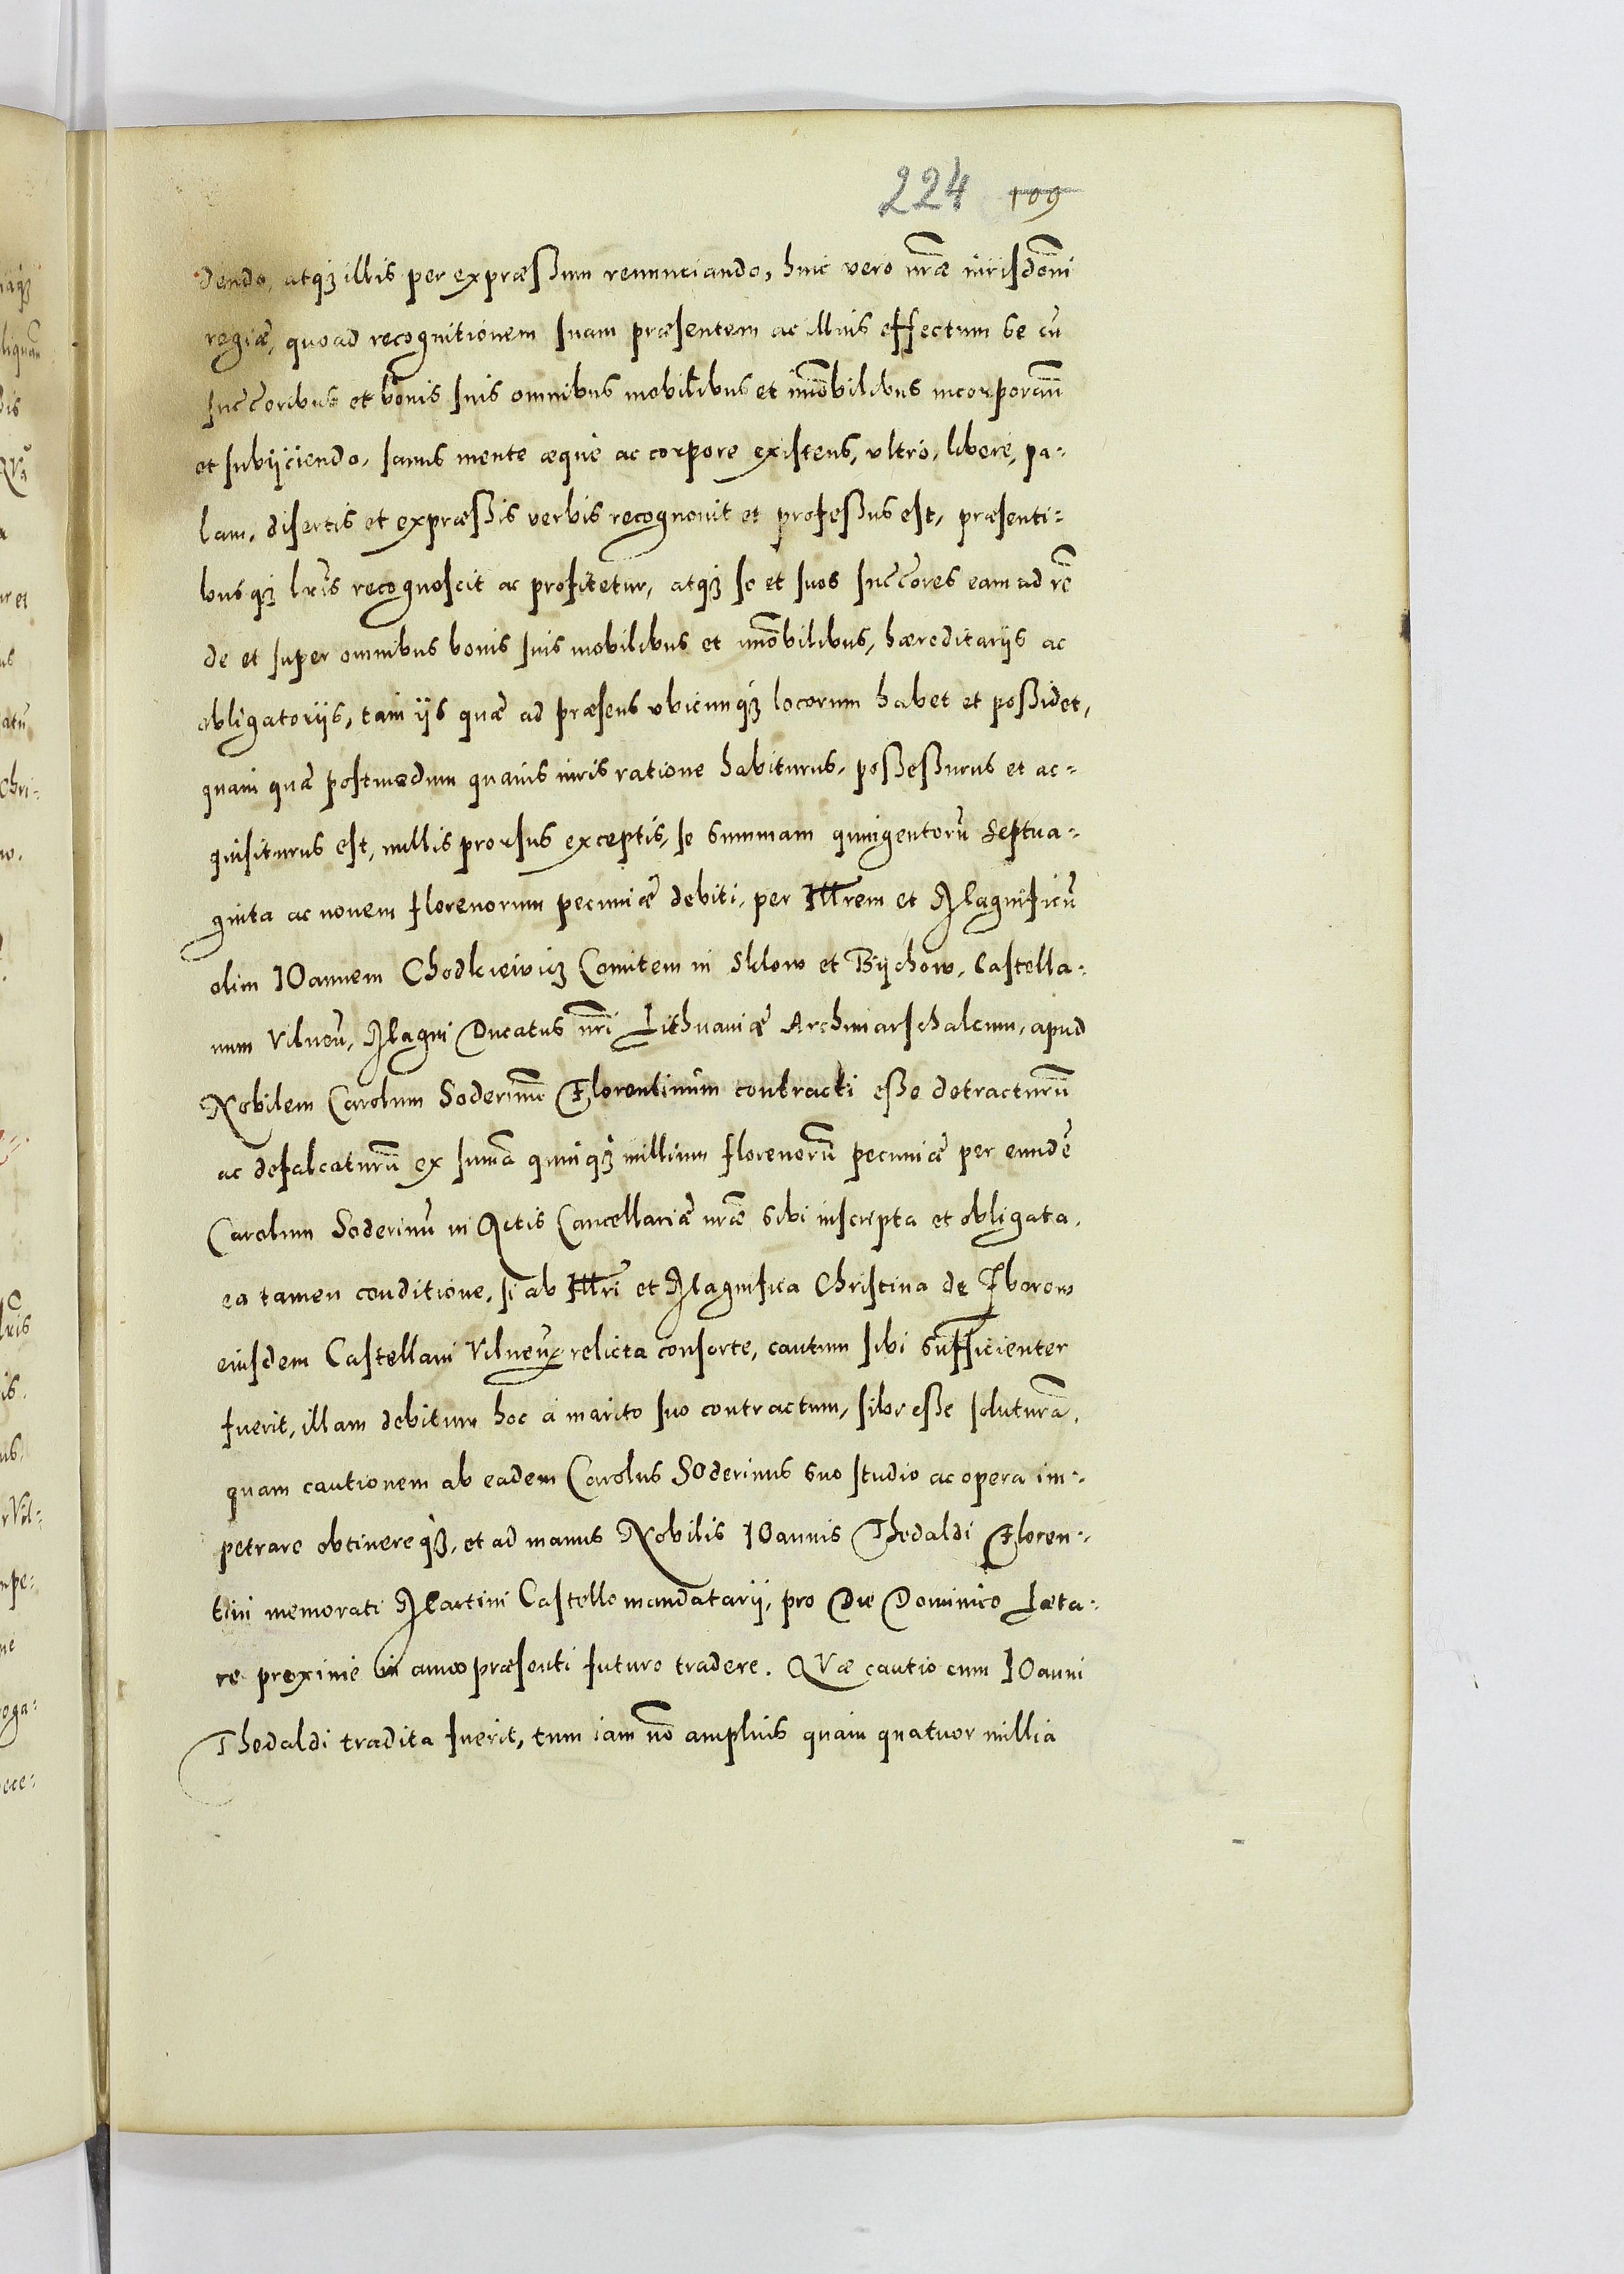 224 109
dendo, atqꝫ illis per expræßum renunciando, huic vero nr̃æ iurisdõni
regiæ, quoad recognitionem suam præsentem ac illius effectum se cũ
succ̃oribus et bonis suis omnibus mobilibus et im̃obilibus incorporañ
et subijciendo, sanus mente æque ac corpore existens, ultrò, liberè, pa⸗
lam, disertis et expræßis verbis recognouit et profeßus est, præsenti⸗
busqꝫ lr̃is recognoscit ac profitetur, atqꝫ se et suos succ̃ores eam ad rẽ
de et super omnibus bonis suis mobilibus et im̃obilibus, hæreditarijs ac
obligatorijs, tam ijs quæ ad præsens vbicunqꝫ locorum habet et poßidet,
quam quæ postmodum quauis iuris ratione habiturus, poßeßurus et ac⸗
quisiturus est, nullis prorsus exceptis, se summam quingentorũ septua⸗
ginta ac nouem florenorum pecuniæ debiti, per Illr̃em et Magnificũ
olim IOannem Chodkieiwicz Comitem in Sklow et Bijchow, Castella⸗
num Vilneñ, Magni Ducatus nr̃i Lithuaniæ Archimarschalcum, apud
Nobilem Carolum Soderinũ Florentinum contracti eße detracturũ
ac defalcaturũ ex sum̃a quinqꝫ millium florenorũ pecuniæ per eundẽ
Carolum Soderinũ in Actis Cancellariæ nr̃æ sibi inscripta et obligata,
ea tamen conditione, si ab Illr̃i et Magnifica Christina de Zborow
eiusdem Castellani Vilneñ relicta consorte, cautum sibi sufficienter
fuerit, illam debitum hoc à marito suo contractum, sibi eße soluturã,
quam cautionem ab eadem Carolus SOderinus suo studio ac opera im⸗
petrare obtinereqꝫ, et ad manus Nobilis IOannis Thedaldi Floren⸗
tini memorati Martini Castello mandatarij, pro Die Dominico Læta⸗
re proximè in anno præsenti futuro tradere. QVæ cautio cum IOanni
Thedaldi tradita fuerit, tum iam nõ amplius quam quatuor millia